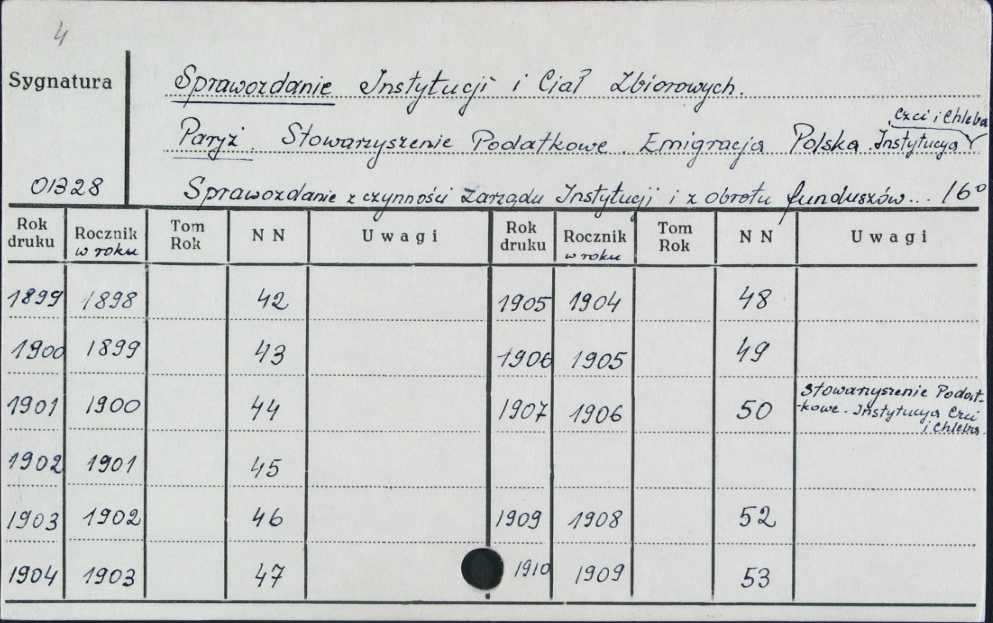 4
Sygnatura
Sprawozdanie Instytucji i Ciał Zbiorowych.
Czci i Chleba
Paryż. Stowarzyszenie Podatkowe. Emigracja Polska. Instytucya
01328 Sprawozdanie z czynności Zarządu Instytucji i z obrotu funduszów... 16°
Rok druku Rocznik w roku Tom Rok N N Uwagi Rok druku Rocznik w roku Tom Rok N N Uwagi
1899 1898 42 1905 1904 48
1900 1899 43 1906 1905 49
1901 1900 44 1907 1906 50 Stowarzyszenie Podat-
-kowe. Instytucya Czci
i Chleba.
1902 1901 45
1903 1902 46 1909 1908 52
1904 1903 47 1910 1909 53